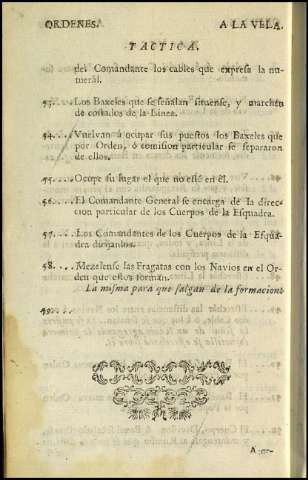 ORDENES. A LA VELA.
TACTICA.
del Comandante los cables que expresa la nu-
meral.
53.... Los Baxeles que se señalan situense, y marchen
de costados de la Linea.
54.... Vuelvan á ocupar sus puestos los Baxeles que
por Orden, ó comision particular se separaron
de ellos.
55.... Ocupe su lugar el que no esté en él.
56.... El Comandante General se encarga de la direc-
cion particular de los Cuerpos de la Esquadra.
57.... Los Comandantes de los Cuerpos de la Esqua-
dra dirijanlos.
58.... Mezclense las Fragatas con los Navios en el Or-
den que estos forman.
La misma para que salgan de la formacion.
59....